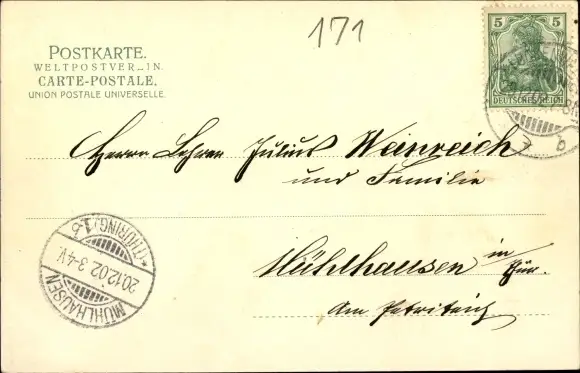 171
POSTKARTE.
WELTPOSTVER..IN.
CARTE-POSTALE.
UNION POSTALE UNIVERSELLE.
5 5
DEUTSCHES REICH
b
Herrn Lehrer Julius Weinreich
und Familie
Mühlhausen in Thür.
Am Petriteich
MÜHLHAUSEN
20.12.02. 3-4 V.
*(THÜRING.)1b